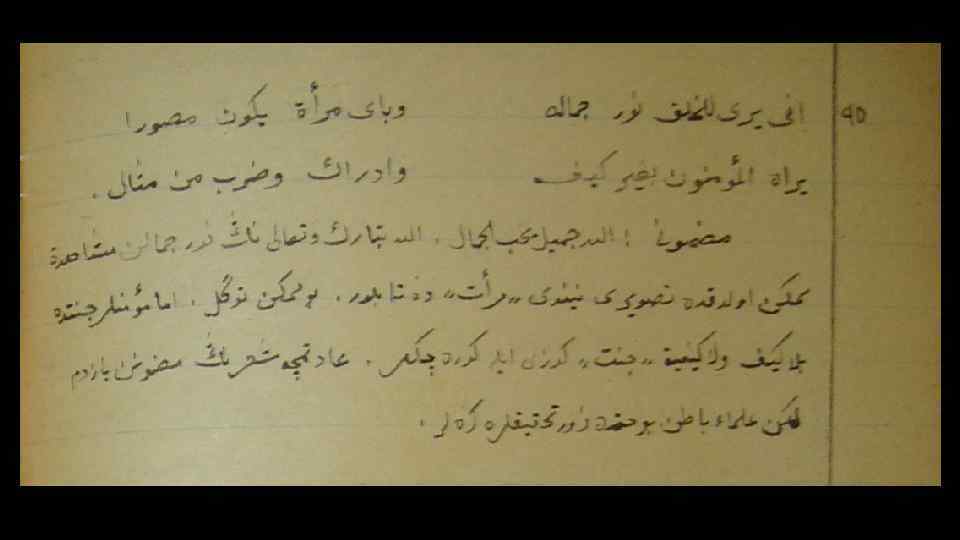 ٩٥ انى يرى للخلق نور جماله وباى مرأة يكون مصورا
يراه المؤمنون بغير كيف وادراك وضرب من مثال .
مضمونى : الله جميل يحب الجمال . الله تبارك وتعالى ناڭ نور جمالن مشاهدة
ممكن اولدقده تصويرى نيندى «مرأت» ده تابلور . بو ممكن توگل . اما مؤمنلر جنتده
بلا كيف ولا كيفية «جنت» كوزى ايله كوره چكلر . عادتمچه شعر ناڭ مضمونن يازدم
لكن علماء باطن بو حقده زور تحقيقلره كره لر .